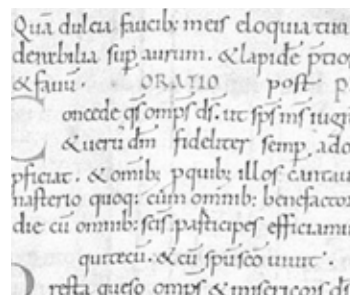 Quā dulcia faucib; meis eloquia tua
derabilia sup aurum. & lapidē p̄tio
& fauū. ORATIO post p
Concede q̄s omp̄s d̄s. ut sp̄s m̄s iugi
& uerū dm̄ fideliter semp ado
pficiat. & omib; p quib; illos cantau
nasterio quoq; cum omnib; benefactor
die cū omnib; s̄cis participes efficiamu
qui tecū. & cū sp̄u sc̄o uiuit.
resta queso omp̄s & misericors d̄s